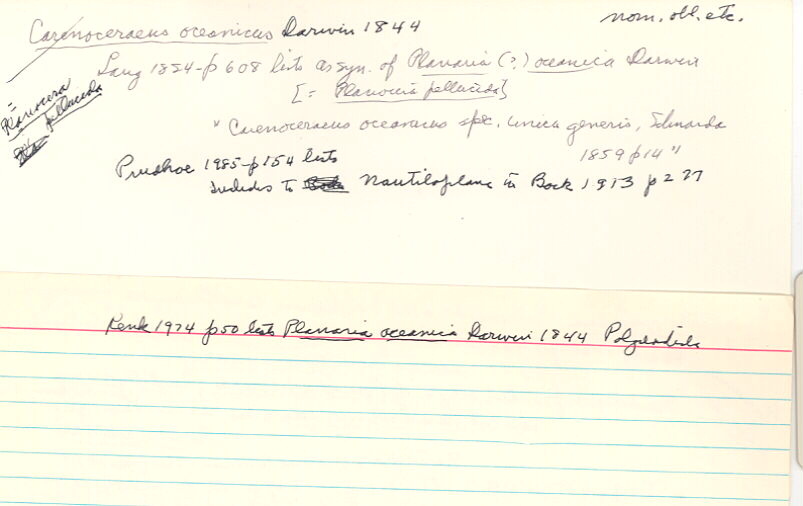 nom. obl. etc.
Carenoceraeus oceanicus Darwin 1844
Lang 1884-p 608 lists as syn. of Planaria (?) oceanica Darwin
[= Planocera pellucida]
= Planocera
pellucida
" Carenoceraeus oceanicus spec. unica generis, Schmarda
1859 p14 "
Prudhoe 1985-p154 lists
includes to Nautiloplana in Bock 1913 p 227
Kenk 1974 p50 lists Planaria oceanica Darwin 1844 Polycladida